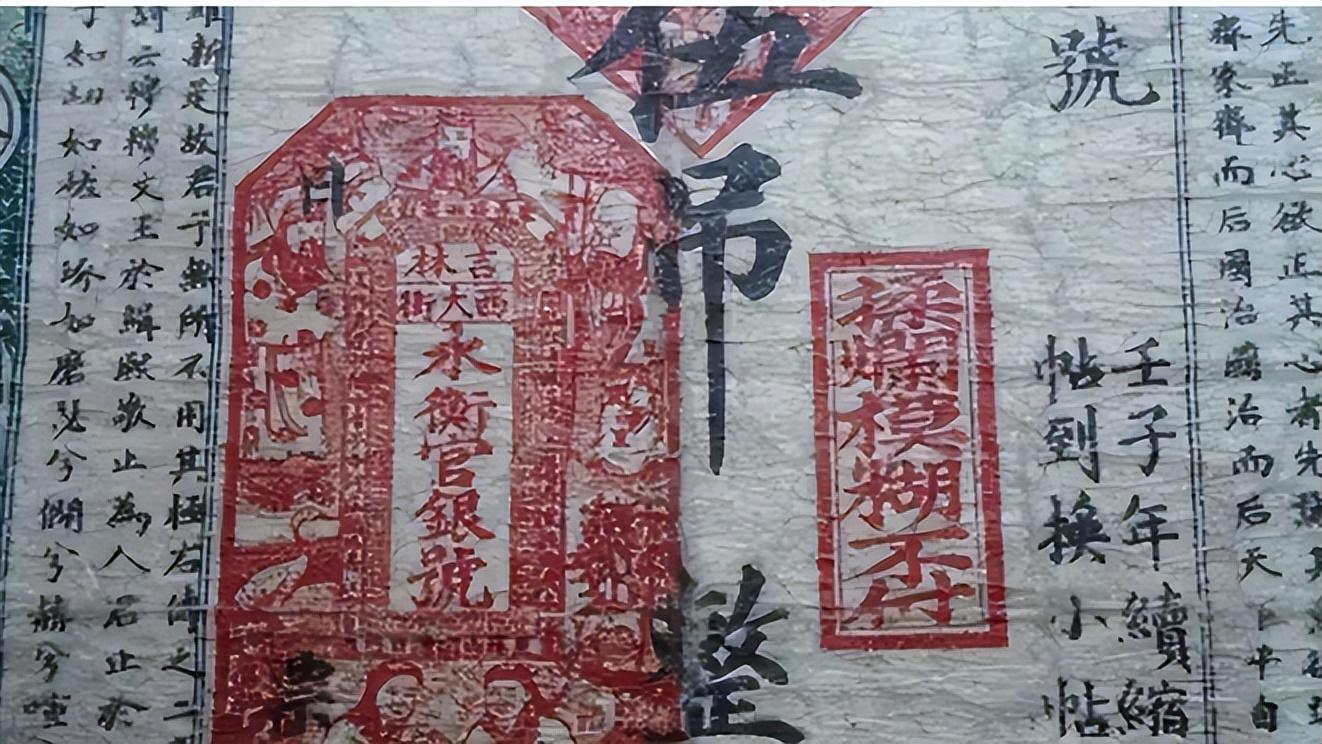 先正其心欲正其心者先誠其
齊家齊而后國治國治而后天下平自
號
壬子年續縮
帖到換小帖
揉爛模糊不付
伍吊整
吉林
西大街
永衡官銀號
日
票
新是故君子無所不用其極右傳之二
云穆穆文王於緝熙敬止為人君止於
子如切如磋如琢如磨瑟兮僩兮赫兮喧